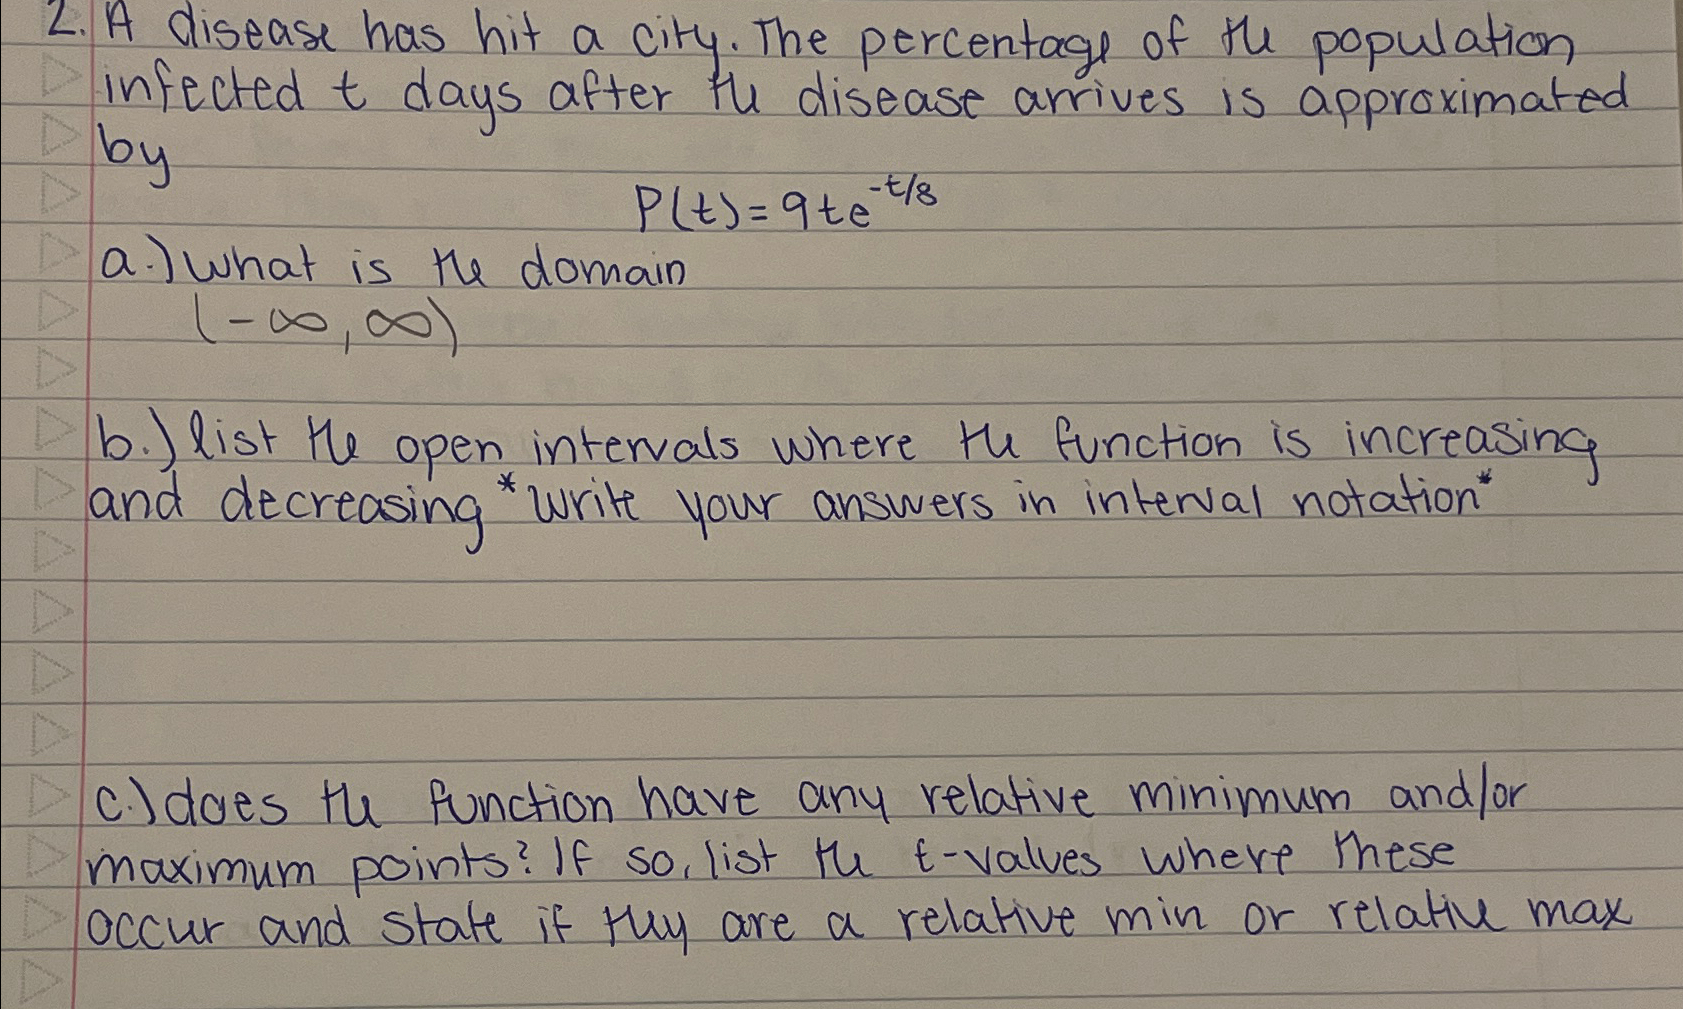 2. A disease has hit a city. The percentage of the population
infected t days after the disease arrives is approximated
by
P(t) = 9te^{-t/8}
a.) what is the domain
(-∞, ∞)
b.) list the open intervals where the function is increasing
and decreasing *write your answers in interval notation*
c.) does the function have any relative minimum and/or
maximum points? If so, list the t-values where these
occur and state if they are a relative min or relative max